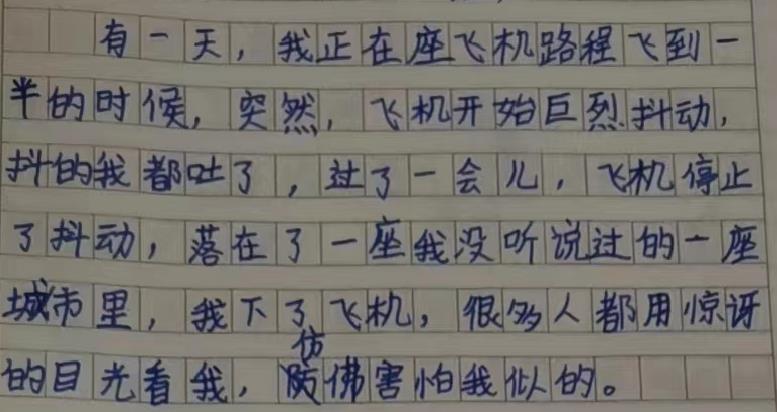 有一天，我正在座飞机路程飞到一
半的时候，突然，飞机开始巨烈抖动，
抖的我都吐了，过了一会儿，飞机停止
了抖动，落在了一座我没听说过的一座
城市里，我下了飞机，很多人都用惊讶
仿
的目光看我，防佛害怕我似的。